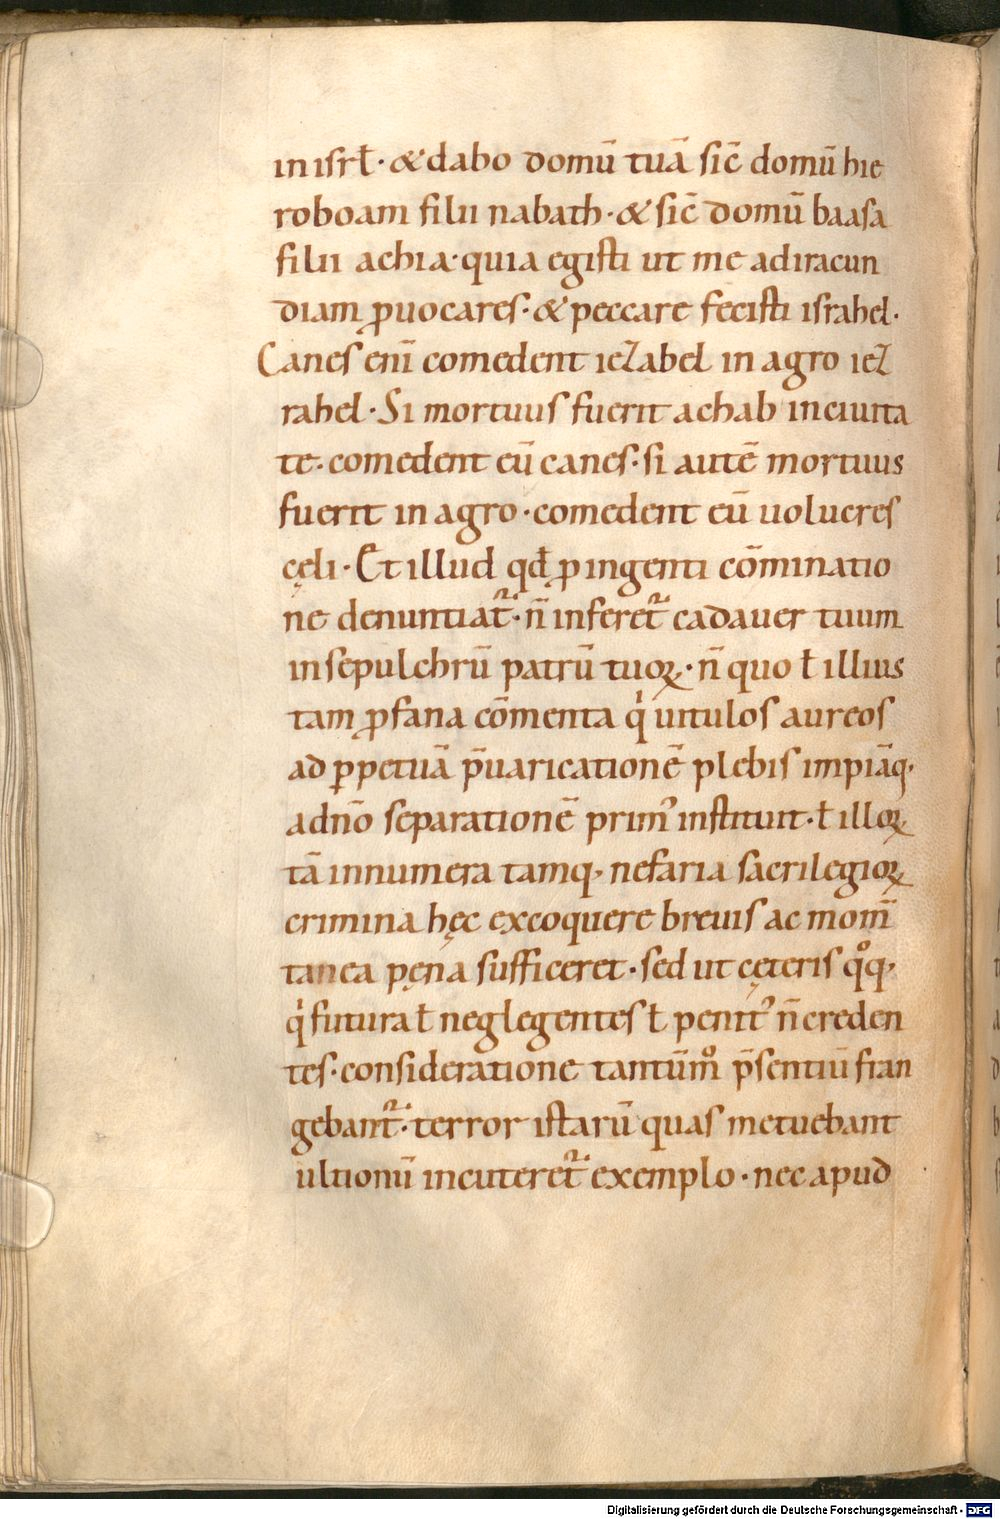 in isrł· & dabo domū tuā sic̄ domū hie
roboam filii nabath· & sic̄ domū baasa
filii achia· quia egisti ut me adiracun
diam ꝓuocares· & peccare fecisti israhel·
Canes eni̅ comedent iezabel in agro iez
rahel· Si mortuus fuerit achab inciuita
te· comedent eū canes· si autē mortuus
fuerit in agro· comedent eū uolucres
cęli· Et illud qđ ꝓ ingenti cōminatio
ne denuntiat᷑· n̄ inferet᷑ cadauer tuum
insepulchrū patrū tuoꝝ· n̄ quo ł illius
tam ꝓfana cōmenta qͥ uitulos aureos
ad ꝑpetuā p̄uaricationē plebis impiāq·
adn̄o separationē prim᾽ instituit· ł illoꝝ
tā innumera tamq· nefaria sacrilegioꝝ
crimina hęc excoquere breuis ac mom̄
tanea pęna sufficeret· sed ut cęteris qͦq·
qͥ futura ł neglegentes ł penit᾽ n̄ creden
tes· consideratione tantūmͦ p̄sentiū fran
gebant᷑· terror istarū quas metuebant
ultionū incuteret᷑ exemplo· nec apud
Digitalisierung gefördert durch die Deutsche Forschungsgemeinschaft - DFG